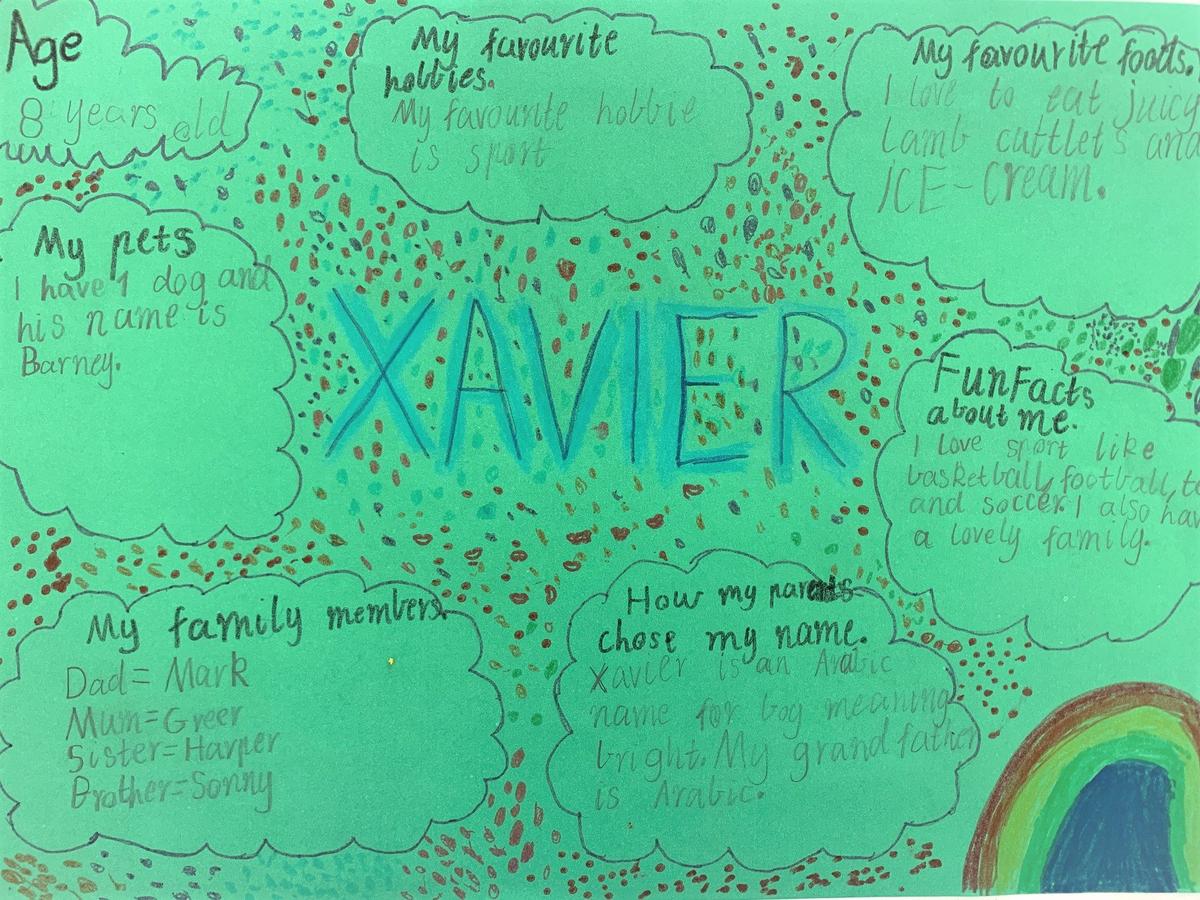 Age
8 years old
My favourite
hobbies.
My favourite hobbie
is sport
My favourite foods.
I love to eat juicy
Lamb cuttlets and
ICE-Cream.
My pets
I have 1 dog and
his name is
Barney.
XAVIER
Fun Facts
about me.
I love sport like
basketball, football, te
and soccer. I also ha
a lovely family.
My family members.
Dad= Mark
Mum=Greer
Sister=Harper
Brother=Sonny
How my parents
chose my name.
Xavier is an Arabic
name for boy meaning
bright. My grandfather
is Arabic.